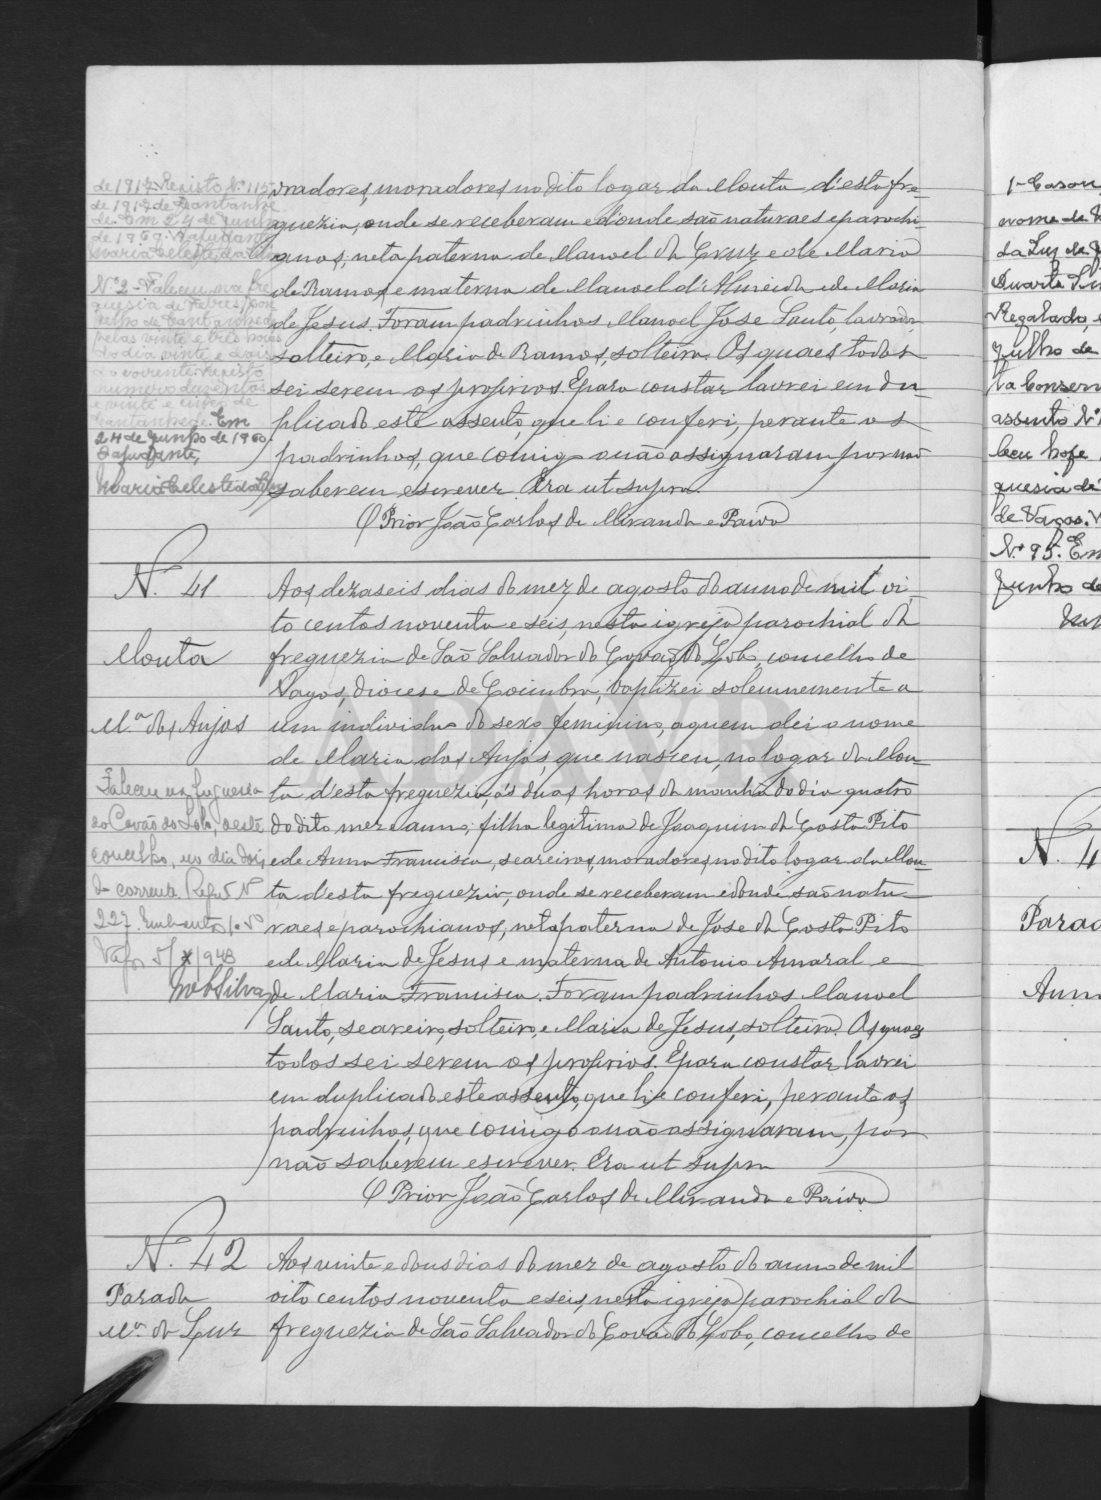 de 1917 Registo Nº 115
de 1917 de Cantanhe
de. Em 24 de Junho
de 1959. O Ajudante
Maria Celeste da
Nº 2 - Faleceu na fre
guesia de Febres, con
celho de Cantanhede
pelas vinte e três horas
do dia vinte e dois
do corrente. Registo
numero duzentos
e vinte e
Cantanhede. Em
24 de Junho de 1960.
O ajudante,
Maria Celeste da
vradores, moradores, no dito logar da Mouta d'esta fre-
guezia, onde se receberam e d'onde são naturaes e parochi-
anos; neta paterna de Manoel da Cruz e de Maria
de Ramos, e materna de Manoel d'Almeida e de Maria
de Jesus. Foram padrinhos Manoel José Santo, lavrador
solteiro, e Maria de Ramos, solteira. Os quaes todos
sei serem os proprios. E para constar lavrei em du-
plicado este assento, que li e conferi, perante os
padrinhos, que comigo o não assignaram por não
saberem escrever. Era ut supra.
O Prior João Carlos de Miranda e Paiva
N. 41
Mouta
M.ª dos Anjos
Faleceu na freguesia
do Covão do Lobo, deste
concelho, no dia dois
do corrente. Regist. Nº
227.
Vagos 5/X/948
MCSilva
Aos dezaseis dias do mez de agosto do anno de mil oi-
to centos noventa e seis, nesta igreja parochial da
freguezia de São Salvador do Covão do Lobo, concelho de
Vagos, diocese de Coimbra, baptizei solemnemente a
um individuo do sexo feminino, a quem dei o nome
de Maria dos Anjos, que nasceu, no logar da Mou-
ta d'esta freguezia, ás duas horas da manhã do dia quatro
do dito mez e anno; filha legitima de Joaquim da Costa Pito
e de Anna Francisca, seareiros, moradores, no dito logar da Mou-
ta d'esta freguezia, onde se receberam e d'onde são natu-
raes e parochianos, neta paterna de Jose da Costa Pito
e de Maria de Jesus e materna de Antonio Amaral e
de Maria Francisca. Foram padrinhos Manoel
Santo, seareiro, solteiro, e Maria de Jesus, solteira. Os quaes
todos sei serem os proprios. E para constar lavrei
em duplicado este assento, que li e conferi, perante os
padrinhos, que comigo o não assignaram, por
não saberem escrever. Era ut supra
O Prior João Carlos de Miranda e Paiva
N. 42
Parada
M.ª da Luz
Aos vinte e dous dias do mez de agosto do anno de mil
oito centos noventa e seis, nesta igreja parochial da
freguezia de São Salvador do Covão do Lobo, concelho de
1 - Casou
nome de
da Luz de
Duarte
Regalado, e
Julho de
ta Conserv
assento Nº
leceu hoje
guesia de
de Vagos.
Nº 95. Em
Junho de
N. 4
Parad
Ann
ADAVR